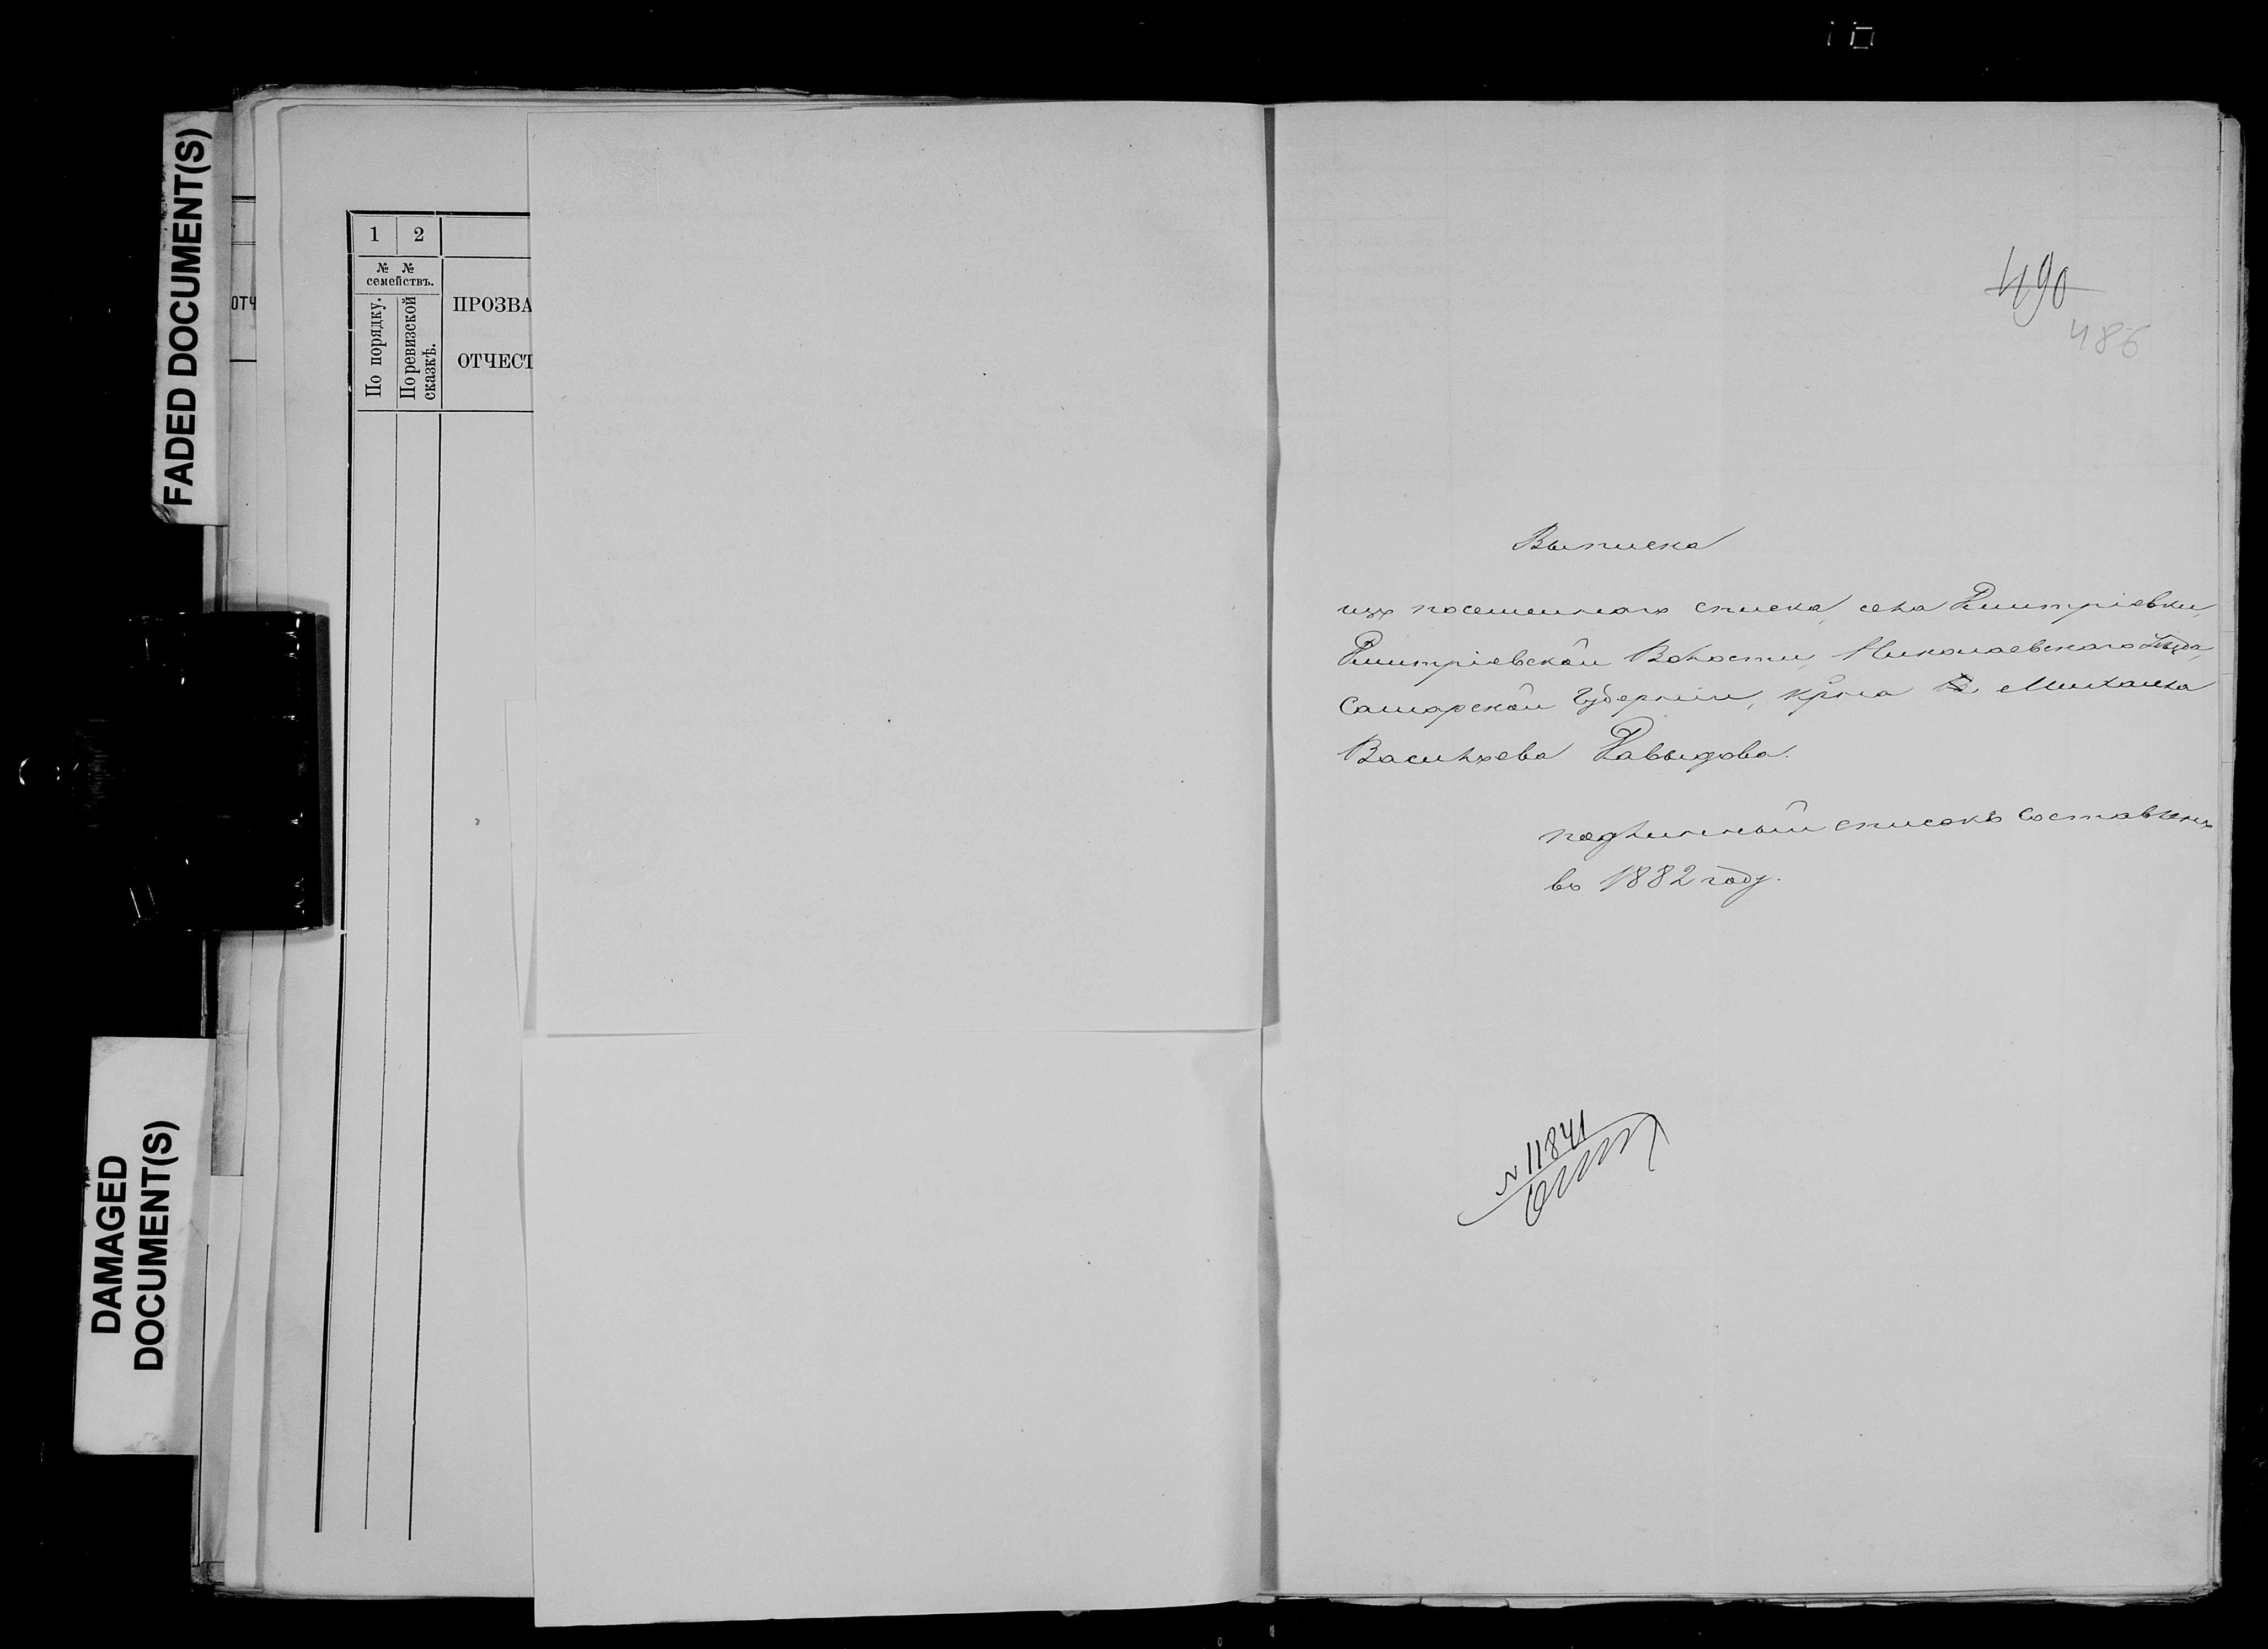 FADED DOCUMENT(S)
DAMAGED
DOCUMENT(S)
ОТЧ
1 2
№ №
семействъ.
По порядку.
По ревизской
сказкѣ.
ПРОЗВА
ОТЧЕСТ
490
486
Выписка
изъ посемейнаго списка, села Дмитріевки,
Дмитріевской Волости, Николаевскаго Уѣзда,
Самарской Губерніи, кр-на Михаила
Васильева Давыдова.
подлинный списокъ составленъ
въ 1882 году.
№ 11841